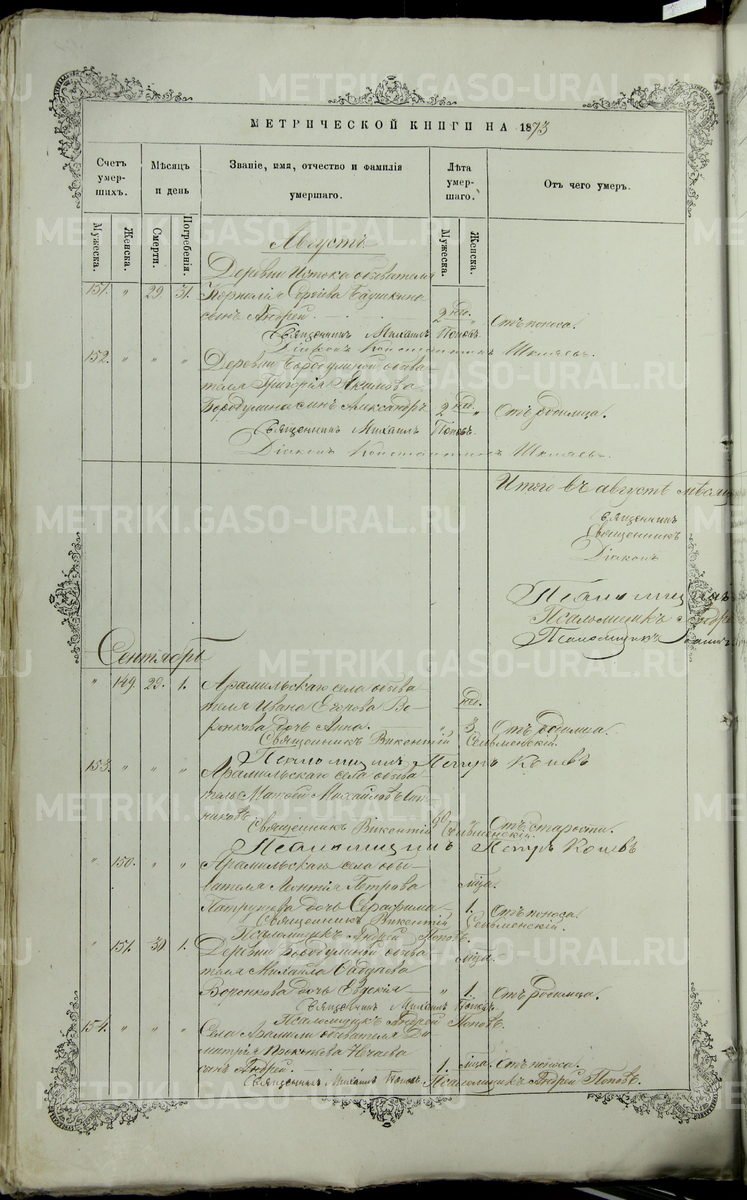 МЕТРИЧЕСКОЙ КНИГИ НА 1873
Счетъ умерших.
Мѣсяцъ и день
Званіе, имя, отчество и фамилія умершаго.
Лѣта умершаго.
Отъ чего умеръ.
Мужеска.
Женска.
Смерти.
Погребенія.
Мужеска.
Женска.
Августъ
Деревни Истока обывателя
151. " 29 31. Корнилія Сергѣева Бабушкина
сынъ Андрей 2 нед. " Отъ поноса.
Священникъ Михаилъ Поповъ.
Діаконъ Константинъ Шкляевъ.
152. " " " Деревни Бородулиной обыва-
теля Григорія Акимова
Бородулина сынъ Александръ 2 нед. " Отъ родимца.
Священникъ Михаилъ Поповъ.
Діаконъ Константинъ Шкляевъ.
Итого въ августѣ мѣсяцѣ
Священникъ
Священникъ
Діаконъ
Псаломщикъ
Псаломщикъ Андрей
Псаломщикъ
Сентябрь
" 149. 29. 1. Арамильскаго села обыва-
теля Ивана Егорова Во-
ронкова дочь Анна. " 3. нед. Отъ родимца.
Священникъ Викентій Сельменскій.
Псаломщикъ Петръ Коцевъ
153. " " " Арамильскаго села обыва-
тель Михайловъ
90 " Отъ старости.
Священникъ Викентій Сельменскій.
Псаломщикъ Петръ Коцевъ
" 150. " " Арамильскаго села обы-
вателя Леонтія Петрова
дочь Серафима 1. мѣца. Отъ поноса.
Священникъ Викентій Сельменскій.
Псаломщикъ Андрей Поповъ.
" 151. 30 1. Деревни Бородулиной обыва-
теля Михаила
Воронкова дочь Евдокія " 1. мѣца. Отъ родимца.
Священникъ Михаилъ Поповъ.
Псаломщикъ Андрей Поповъ.
154. " " " Села Арамили обывателя Ди-
митрія Нечаева
сынъ Андрей. 1. мѣца. Отъ поноса.
Священникъ Михаилъ Поповъ Псаломщикъ Андрей Поповъ.
METRIKI.GASO-URAL.RU